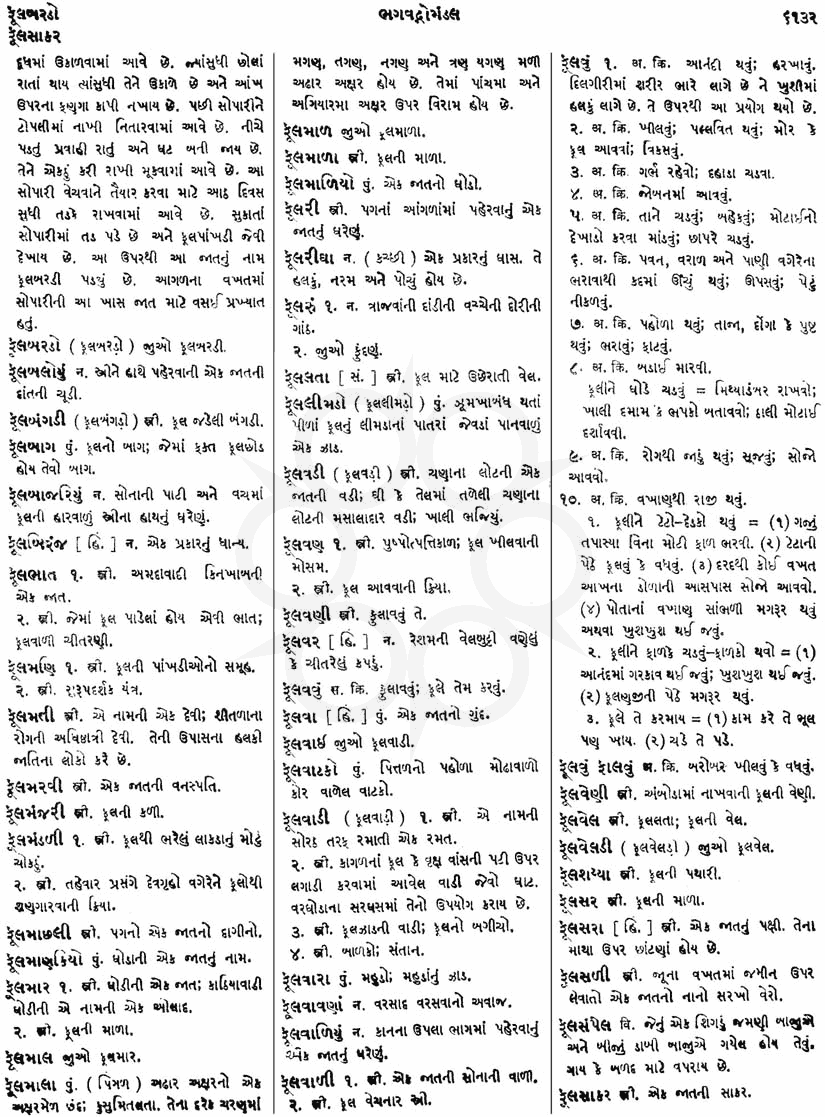 ફૂલબરડો
ફૂલસાકર
ભગવદ્ગોમંડલ
૬૧૩૨
દૂધમાં ઉકાળવામાં આવે છે. જ્યાંસુધી છોલાં
રાતાં થાય ત્યાંસુધી તેને ઉકાળે છે અને આંખ
ઉપરના ફણુગા કાપી નખાય છે. પછી સોપારીને
ટોપલીમાં નાખી નિતારવામાં આવે છે. નીચે
પડતું પ્રવાહી રાતું અને ઘટ બની જાય છે.
તેને એકઠું કરી રાખી મૂકવામાં આવે છે. આ
સોપારી વેચવાને તૈયાર કરવા માટે આઠ દિવસ
સુધી તડકે રાખવામાં આવે છે. સુકાતાં
સોપારીમાં તડ પડે છે અને ફૂલપાંખડી જેવી
દેખાય છે. આ ઉપરથી આ જાતનું નામ
ફૂલબરડી પડયું છે. આગળના વખતમાં
સોપારીની આ ખાસ જાત માટે વસઈ પ્રખ્યાત
હતું.
ફૂલબરડો ( ફૂલબરડ઼ો ) જુઓ ફૂલબરડી.
ફૂલબલોયું ન. સ્ત્રીને હાથે પહેરવાની એક જાતની
દાંતની ચૂડી.
ફૂલબંગડી ( ફૂલબંગડ઼ી ) સ્ત્રી. ફૂલ જડેલી બંગડી.
ફૂલબાગ પું. ફૂલનો બાગ; જેમાં ફક્ત ફૂલછોડ
હોય તેવો બાગ.
ફૂલબાજરિયું ન. સોનાની પાટી અને વચમાં
ફૂલની હારવાળું સ્ત્રીના હાથનું ઘરેણું.
ફૂલબિરંજ [ હિં. ] ન. એક પ્રકારનું ધાન્ય.
ફૂલભાત ૧. સ્ત્રી. અમદાવાદી કિનખાબની
એક જાત.
૨. સ્ત્રી. જેમાં ફૂલ પાડેલાં હોય એવી ભાત;
ફૂલવાળી ચીતરણી.
ફૂલમણિ ૧. સ્ત્રી. ફૂલની પાંખડીઓનો સમૂહ.
૨. સ્ત્રી. સારૂપદર્શક યંત્ર.
ફૂલમતી સ્ત્રી. એ નામની એક દેવી; શીતળાના
રોગની અધિષ્ઠાત્રી દેવી. તેની ઉપાસના હલકી
જાતિના લોકો કરે છે.
ફૂલમરવી સ્ત્રી. એક જાતની વનસ્પતિ.
ફૂલમંજરી સ્ત્રી. ફૂલની કળી.
ફૂલમંડળી ૧. સ્ત્રી. ફૂલથી ભરેલું લાકડાનું મોટું
ચોકઠું.
૨. સ્ત્રી. તહેવાર પ્રસંગે દેવગૃહો વગેરેને ફૂલોથી
શણગારવાની ક્રિયા.
ફૂલમાછલી સ્ત્રી. પગનો એક જાતનો દાગીનો.
ફૂલમાણકિયો પું. ઘોડાની એક જાતનું નામ.
ફૂલમાર ૧. સ્ત્રી. ઘોડીની એક જાત; કાઠિયાવાડી
ઘોડીની એ નામની એક ઓલાદ.
૨. સ્ત્રી. ફૂલની માળા.
ફૂલમાલ જુઓ ફૂલમાર.
ફૂલમાલા પું. ( પિંગળ ) અઢાર અક્ષરનો એક
અક્ષરમેળ છંદ; કુસુમિતલતા. તેના દરેક ચરણમાં
મગણ, તગણ, નગણ અને ત્રણ યગણ મળી
અઢાર અક્ષર હોય છે. તેમાં પાંચમા અને
અગિયારમા અક્ષર ઉપર વિરામ હોય છે.
ફૂલમાળ જુઓ ફૂલમાળા.
ફૂલમાળા સ્ત્રી. ફૂલની માળા.
ફૂલમાળિયો પું. એક જાતનો ઘોડો.
ફૂલરી સ્ત્રી. પગનાં આંગળાંમાં પહેરવાનું એક
જાતનું ઘરેણું.
ફૂલરીઘા ન. ( કચ્છી ) એક પ્રકારનું ઘાસ. તે
હલકું, નરમ અને પોચું હોય છે.
ફૂલરું ૧. ન. ત્રાજવાંની દાંડીની વચ્ચેની દોરીની
ગાંઠ.
૨. જુઓ ફુંદણું.
ફૂલલતા [ સં. ] સ્ત્રી. ફૂલ માટે ઉછેરાતી વેલ.
ફૂલલીમડો ( ફૂલલીમડ઼ો ) પું. ઝૂમખાબંધ થતાં
પીળાં ફૂલનું લીમડાનાં પાતરાં જેવડાં પાનવાળું
એક ઝાડ.
ફૂલવડી ( ફૂલવડ઼ી ) સ્ત્રી. ચણાના લોટની એક
જાતની વડી; ઘી કે તેલમાં તળેલી ચણાના
લોટની મસાલાદાર વડી; ખાલી ભજિયું.
ફૂલવણ ૧. સ્ત્રી. પુષ્પોત્પત્તિકાળ; ફૂલ ખીલવાની
મોસમ.
૨. સ્ત્રી. ફૂલ આવવાની ક્રિયા.
ફૂલવણી સ્ત્રી. ફુલાવવું તે.
ફૂલવર [ હિં. ] ન. રેશમની વેલબુટ્ટી વણેલું
કે ચીતરેલું કપડું.
ફૂલવવું સ. ક્રિ. ફુલાવવું; ફૂલે તેમ કરવું.
ફૂલવા [ હિં. ] પું. એક જાતનો ગુંદ.
ફૂલવાઈ જુઓ ફૂલવાડી.
ફૂલવાટકો પું. પિત્તળનો પહોળા મોઢાવાળો
કોર વાળેલ વાટકો.
ફૂલવાડી ( ફૂલવાડ઼ી ) ૧. સ્ત્રી. એ નામની
સોરઠ તરફ રમાતી એક રમત.
૨. સ્ત્રી. કાગળનાં ફૂલ કે વૃક્ષ વાંસની પટી ઉપર
લગાડી કરવામાં આવેલ વાડી જેવો ઘાટ.
વરઘોડાના સરઘસમાં તેનો ઉપયોગ કરાય છે.
૩. સ્ત્રી. ફૂલઝાડની વાડી; ફૂલનો બગીચો.
૪. સ્ત્રી. બાળકો; સંતાન.
ફૂલવારા પું. મહુડો; મહુડાંનું ઝાડ.
ફૂલવાવણાં ન. વરસાદ વરસવાનો અવાજ.
ફૂલવાળિયું ન. કાનના ઉપલા ભાગમાં પહેરવાનું
એક જાતનું ઘરેણું.
ફૂલવાળી ૧. સ્ત્રી. એક જાતની સોનાની વાળી.
૨. સ્ત્રી. ફૂલ વેચનાર સ્ત્રી.
ફૂલવું ૧. અ. ક્રિ. આનંદી થવું; હરખાવું.
દિલગીરીમાં શરીર ભારે લાગે છે ને ખુશીમાં
હલકું લાગે છે. તે ઉપરથી આ પ્રયોગ થયો છે.
૨. અ. ક્રિ. ખીલવું; પલ્લવિત થવું; મોર કે
ફૂલ આવવાં; વિકસવું.
૩. અ. ક્રિ. ગર્ભ રહેવો; દહાડા ચડવા.
૪. અ. ક્રિ. જોબનમાં આવવું.
૫. અ. ક્રિ. તાને ચડવું; બહેકવું; મોટાઈનો
દેખાડો કરવા માંડવું; છાપરે ચડવું.
૬. અ. ક્રિ. પવન, વરાળ અને પાણી વગેરેના
ભરાવાથી કદમાં ઊંચું થવું; ઊપસવું; પેટું
નીકળવું.
૭. અ. ક્રિ. પહોળા થવું; તાજા, દોંગા કે પુષ્ટ
થવું; ભરાવું; ફાટવું.
૮. અ. ક્રિ. બડાઈ મારવી.
ફૂલીને ઘોડે ચડવું = મિથ્યાડંબર રાખવો;
ખાલી દમામ કે ભપકો બતાવવો; ઠાલી મોટાઈ
દર્શાવવી.
૯. અ. ક્રિ. રોગથી જાડું થવું; સૂજવું; સોજો
આવવો.
૧૦. અ. ક્રિ. વખાણથી રાજી થવું.
૧. ફૂલીને ટેટો-દેડકો થવું = (૧) ગજું
તપાસ્યા વિના મોટી ફાળ ભરવી. (૨) ટેટાની
પેઠે ફૂલવું કે વધવું. (૩) દરદથી કોઈ વખત
આંખના ડોળાની આસપાસ સોજો આવવો.
(૪) પોતાનાં વખાણ સાંભળી મગરૂર થવું
અથવા ખુશખુશ થઈ જવું.
૨. ફૂલીને ફાળકે ચડવું-ફાળકો થવો = (૧)
આનંદમાં ગરકાવ થઈ જવું; ખુશખુશ થઈ જવું.
(૨) ફૂલણજીની પેઠે મગરૂર થવું.
૩. ફૂલે તે કરમાય = (૧) કામ કરે તે ભૂલ
પણ ખાય. (૨) ચડે તે પડે.
ફૂલવું ફાલવું અ. ક્રિ. બરોબર ખીલવું કે વધવું.
ફૂલવેણી સ્ત્રી. અંબોડામાં નાખવાની ફૂલની વેણી.
ફૂલવેલ સ્ત્રી. ફૂલલતા; ફૂલની વેલ.
ફૂલવેલડી ( ફૂલવેલડ઼ી ) જુઓ ફૂલવેલ.
ફૂલશય્યા સ્ત્રી. ફૂલની પથારી.
ફૂલસર સ્ત્રી. ફૂલની માળા.
ફૂલસરા [ હિં. ] સ્ત્રી. એક જાતનું પક્ષી. તેના
માથા ઉપર છાંટણાં હોય છે.
ફૂલસળી સ્ત્રી. જૂના વખતમાં જમીન ઉપર
લેવાતો એક જાતનો નાનો સરખો વેરો.
ફૂલસંપેલ વિ. જેનું એક શિંગડું જમણી બાજુએ
અને બીજું ડાબી બાજુએ ગયેલ હોય તેવું.
ગાય કે બળદ માટે વપરાય છે.
ફૂલસાકર સ્ત્રી. એક જાતની સાકર.